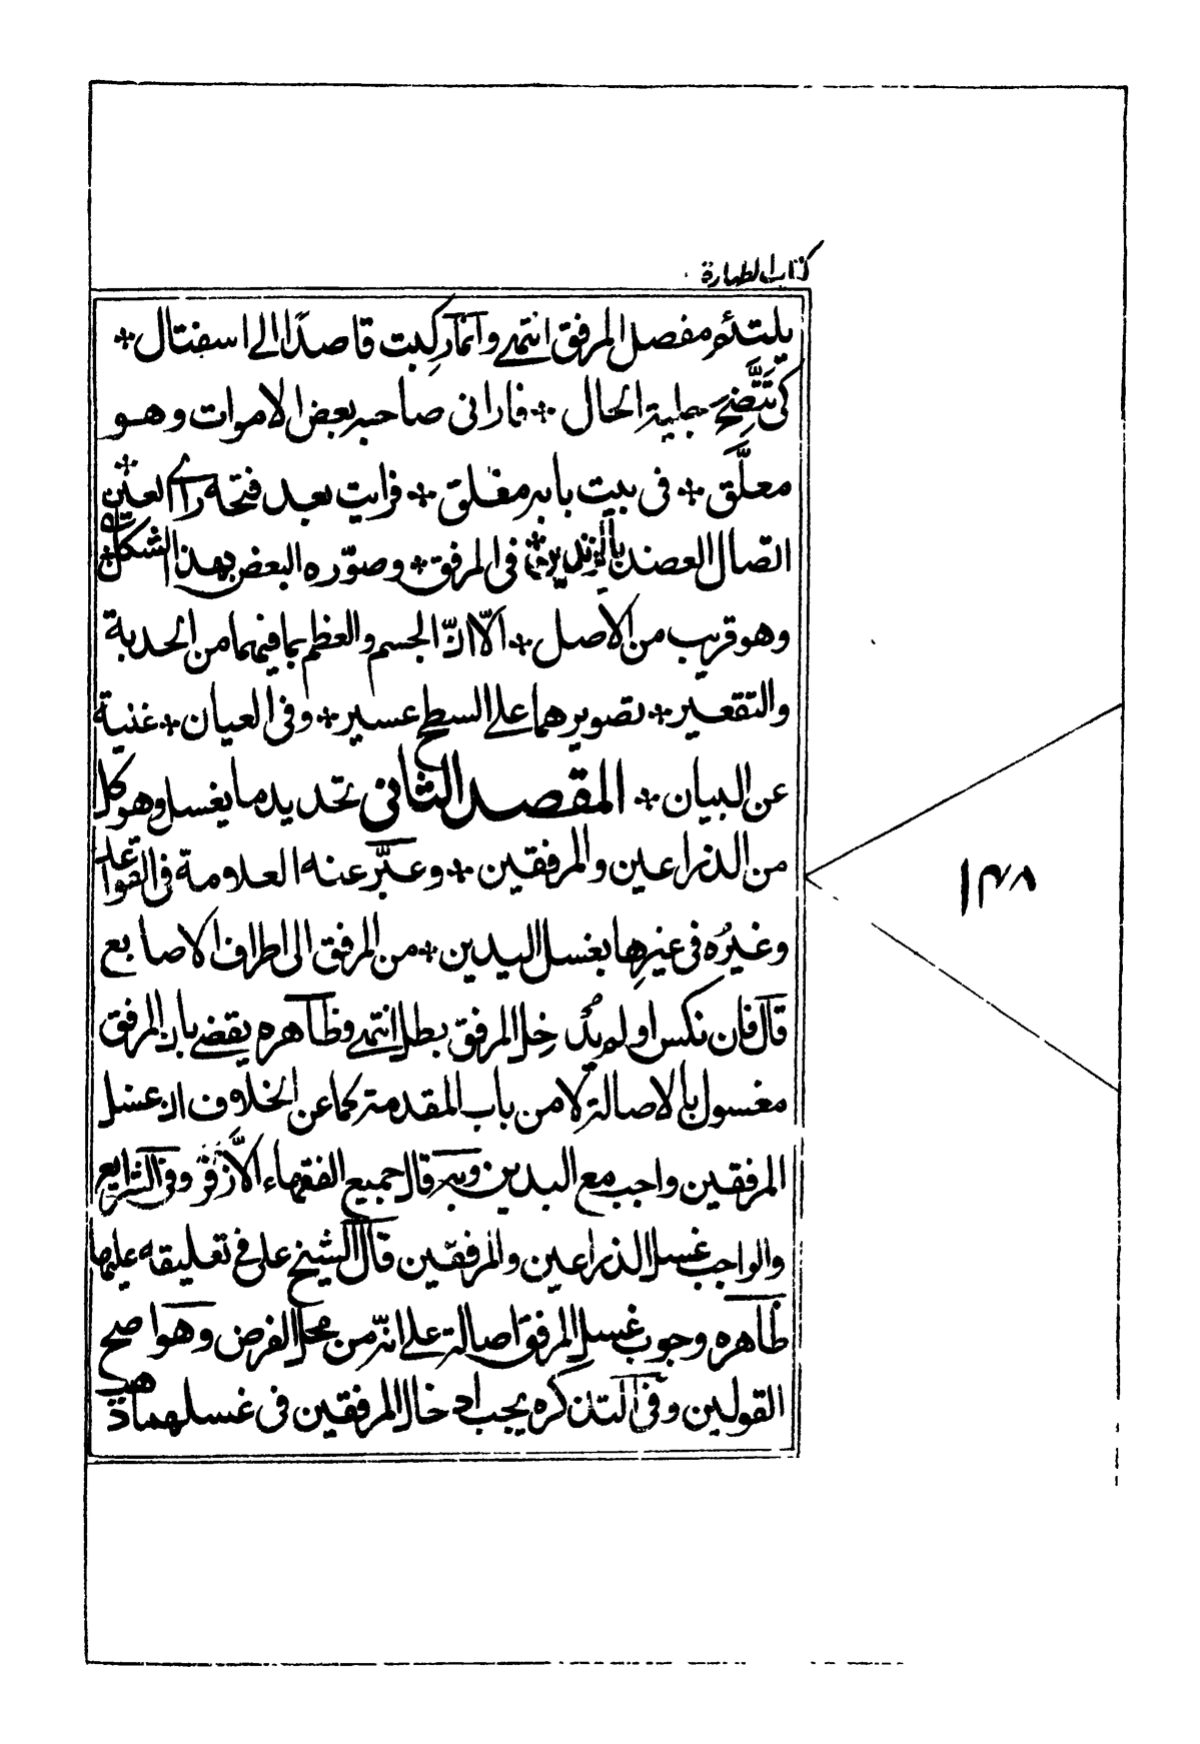 كتاب الطهارة
يلتئم مفصل المرفق انتهى وانما ركبت قاصدًا الى اسفتال ⁘
كى تتَّضِحَ جلية الحال ⁘ فارانى صاحبه بعض الاموات وهو
معلَّق ⁘ فى بيت بابه مغلق ⁘ فرايت بعد فتحه راى العين ⁘
اتصال العضد بالزندين ⁘ فى المرفق ⁘ وصوّره البعض بهذا الشكل
وهو قريب من الاصل ⁘ الّا انّ الجسم والعظم بما فيهما من الحدبة
والتقعير ⁘ تصويرهما على السطح عسير ⁘ وفى العيان ⁘ غنية
عن البيان ⁘ المقصد الثانى تحديد ما يغسل وهو كل
من الذراعين والمرفقين ⁘ وعبَّر عنه العلامة فى القواعد
وغيرُه فى غيرِها بغسل اليدين ⁘ من المرفق الى اطراف الاصابع
قال فان نكس او لم يُدخِل المرفق بطل انتهى وظاهره يقضى بان المرفق
مغسول بالاصالة لا من باب المقدمة كما عن الخلاف ان غسل
المرفقين واجب مع اليدين وبه قال جميع الفقهاء الّا زفر وفى الشرايع
والواجب غسل الذراعين والمرفقين قال الشيخ على فى تعليقه عليها
ظاهره وجوب غسل المرفق اصالة على انّه من محل الفرض وهو اصح
القولين وفى التذكره يجب ادخال المرفقين فى غسلهما